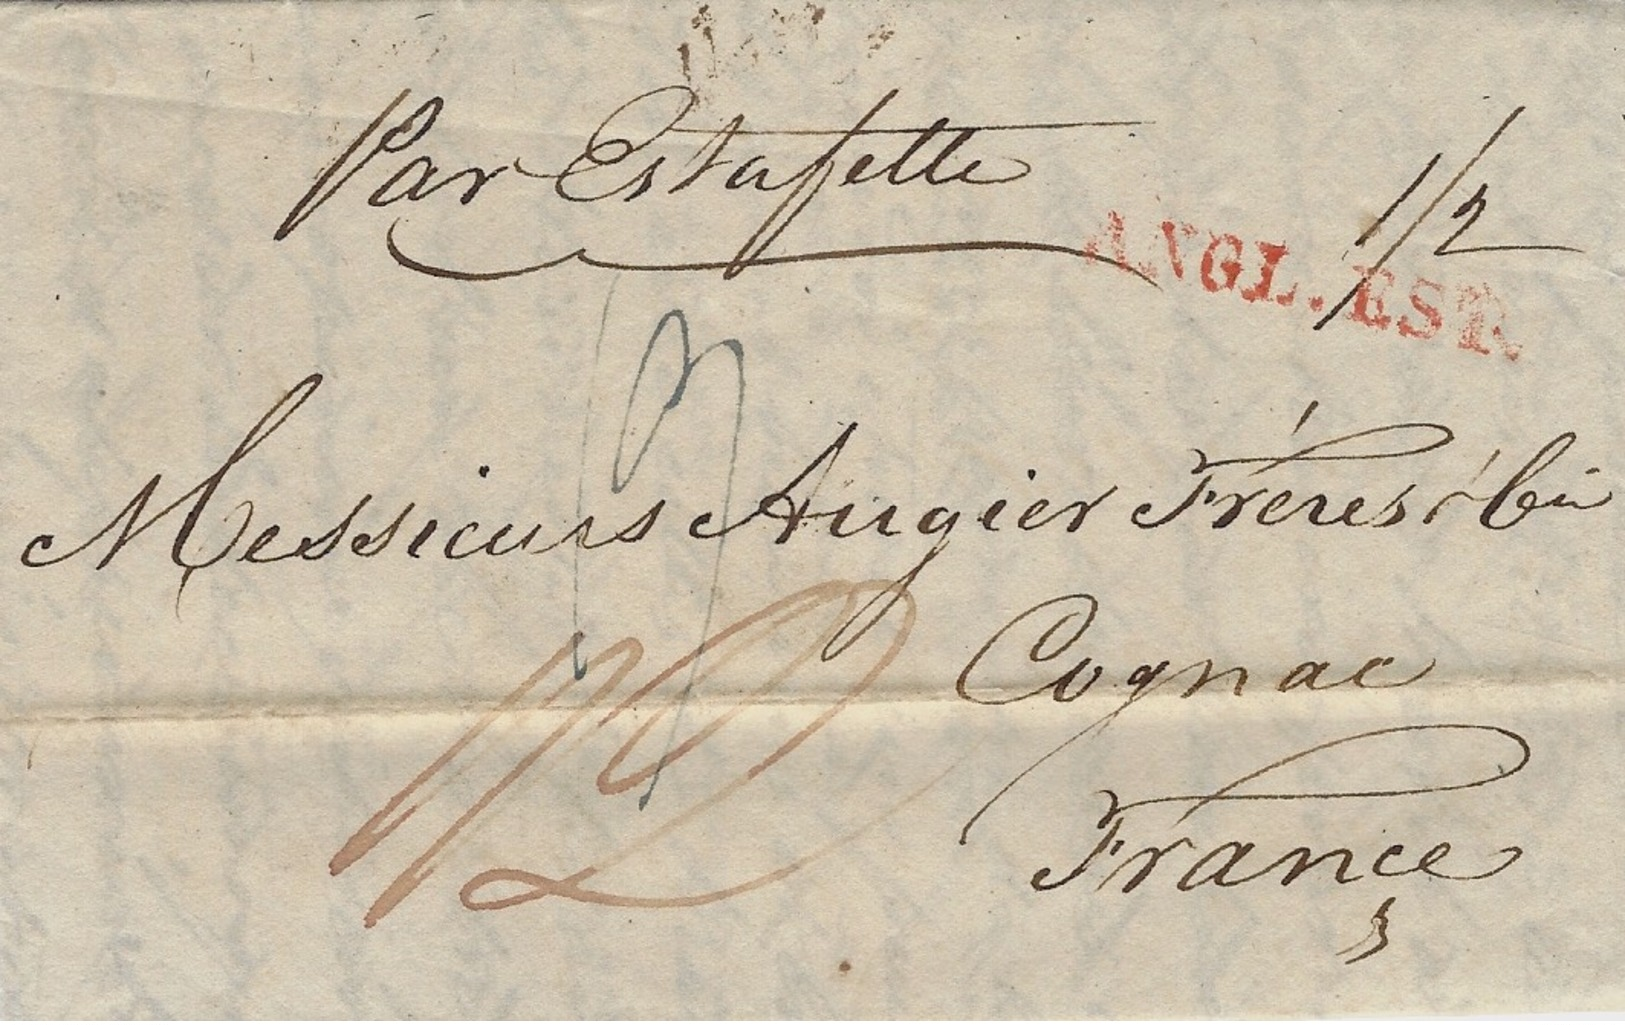 Par Estafette
1/2
ANGL. EST.
Messieurs Augier Frères & Cie
Cognac
France